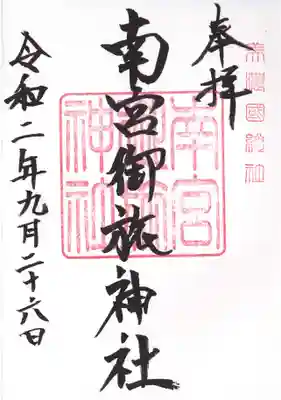 美濃國総社
奉拝
南宮御旅神社
南宮
御旅
神社
令和二年九月二十六日